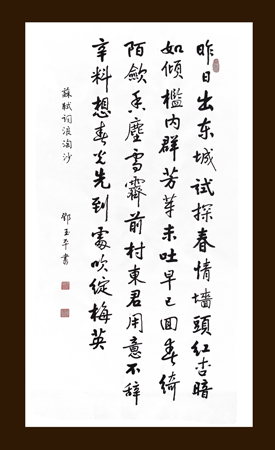 昨日出东城試探春情墻頭紅杏暗
如傾檻内群芳芽未吐早已回春綺
陌斂香塵雪霽前村東君用意不辞
辛料想春光先到處吹綻梅英
蘇軾詞浪淘沙
鄧玉平書